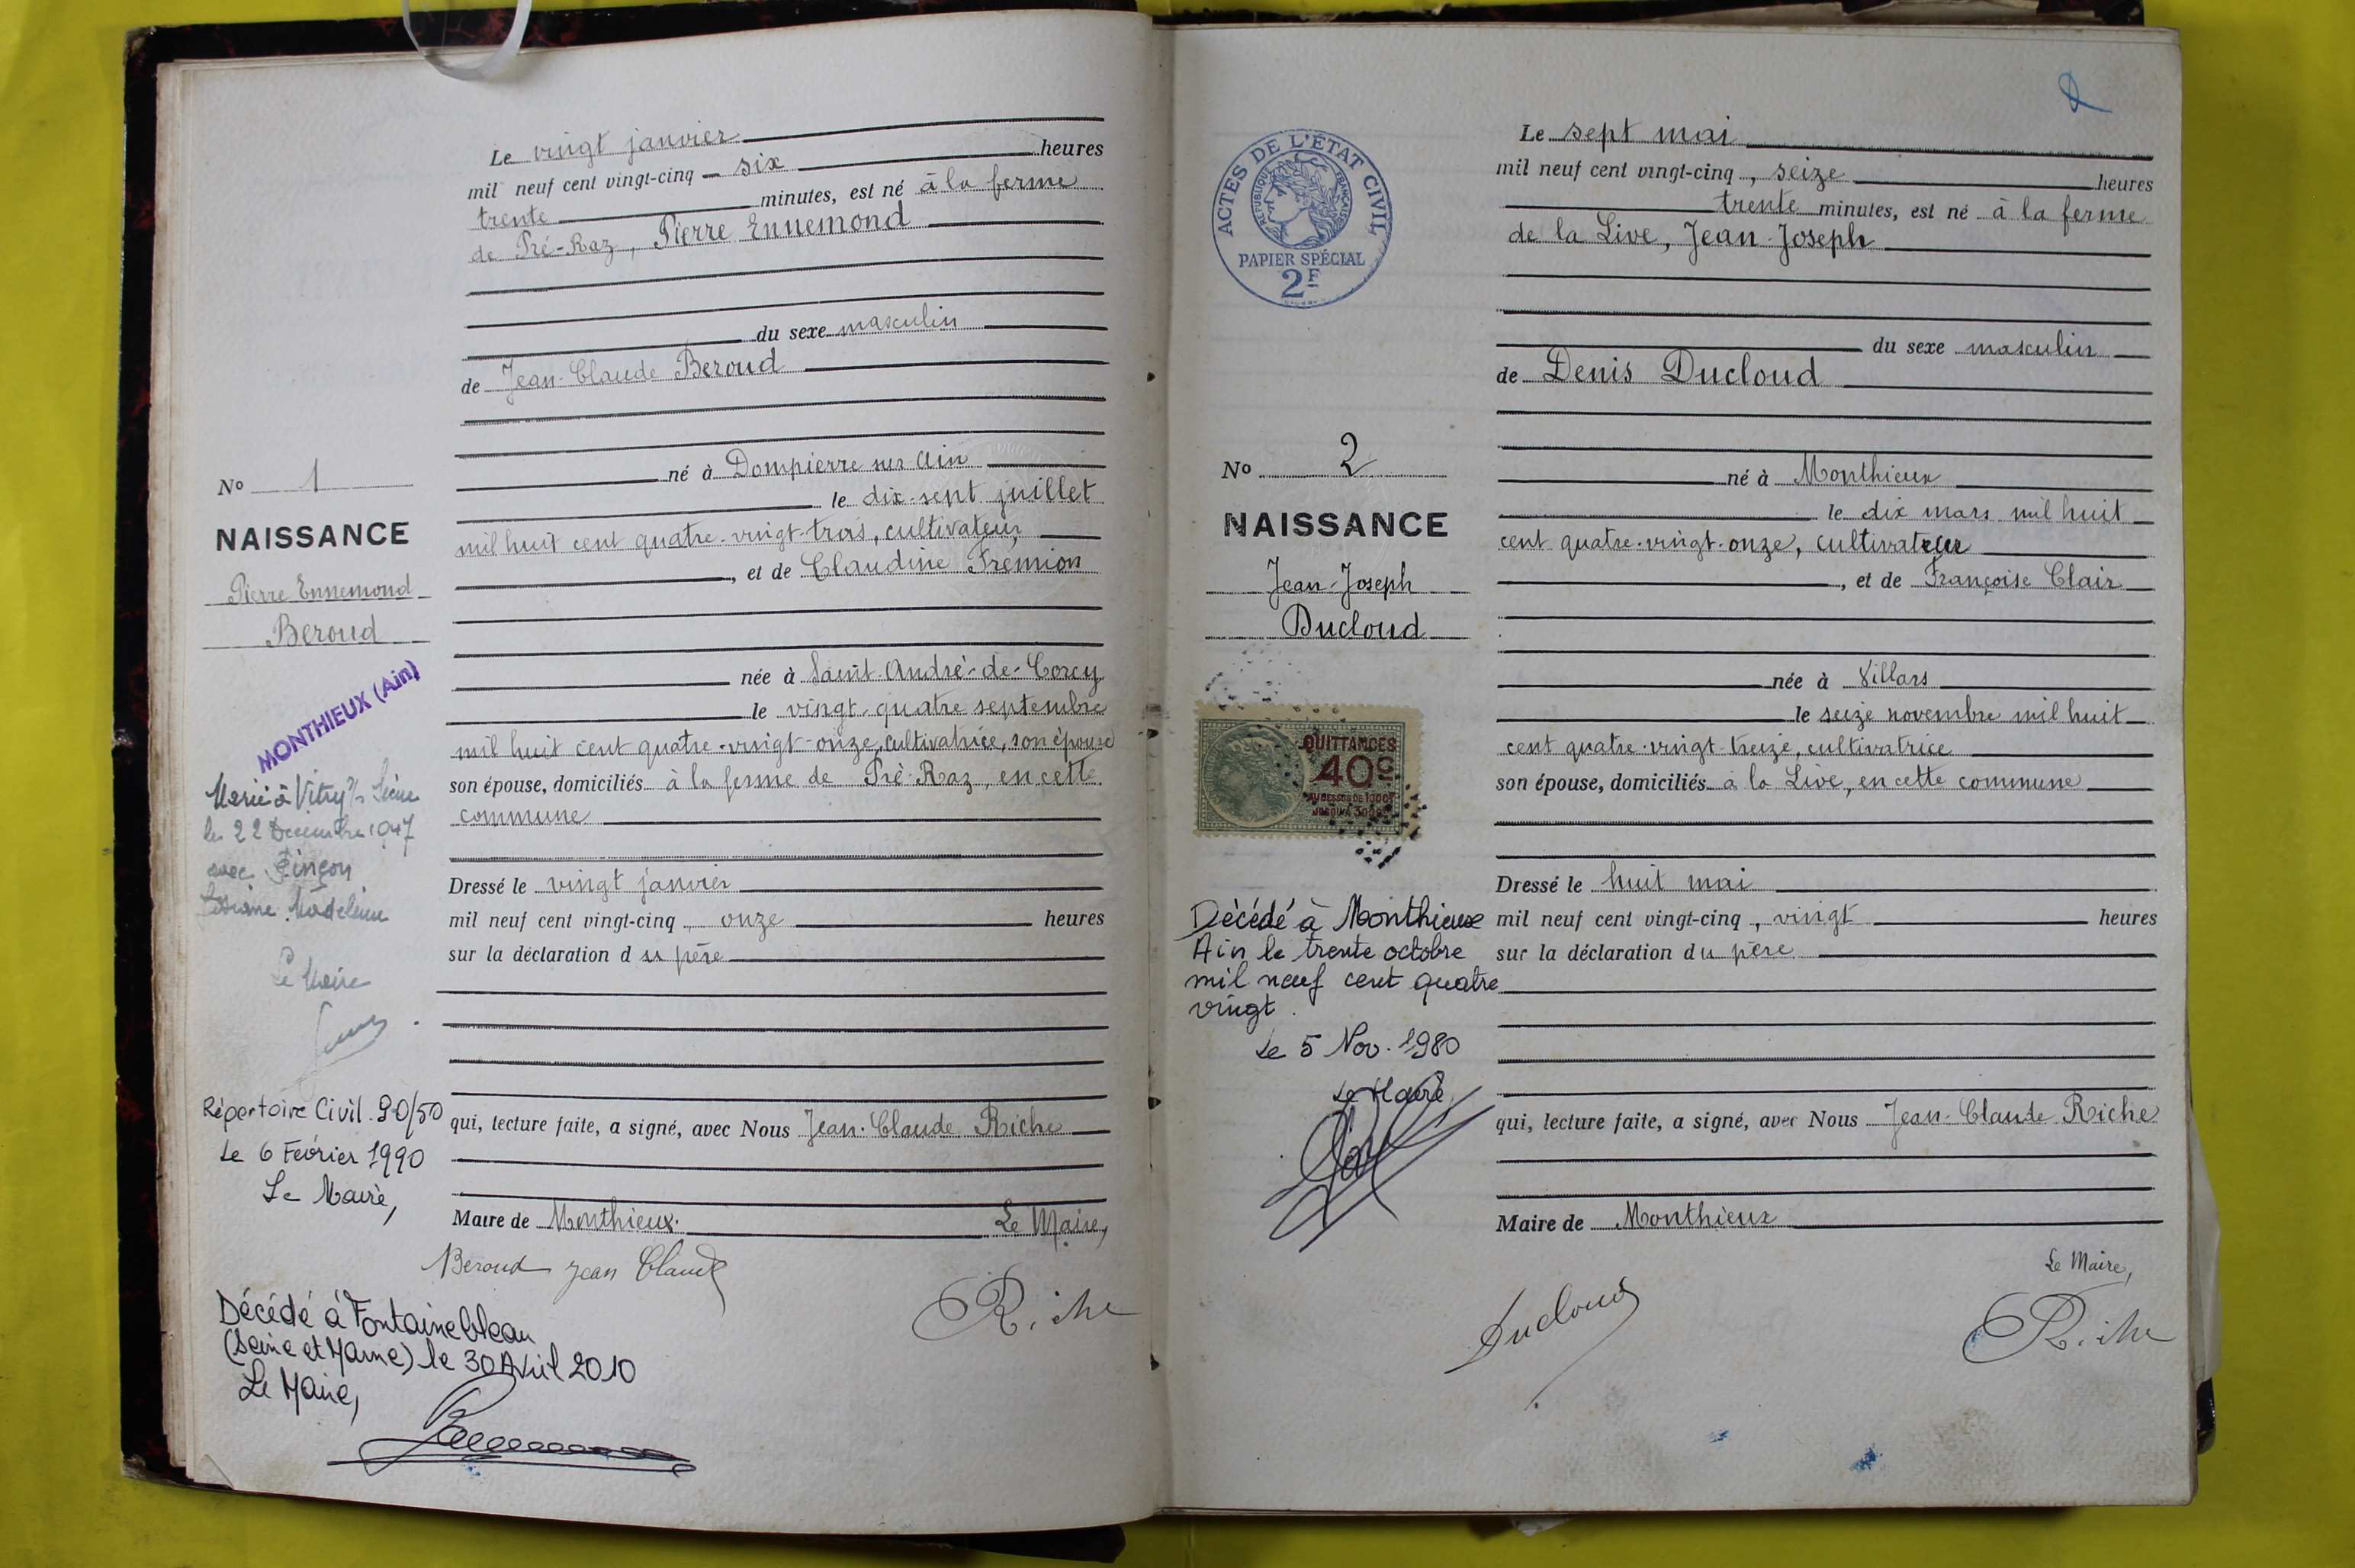 Le vingt janvier
mil neuf cent vingt-cinq six heures
trente minutes, est né à la ferme
de Pré-Raz, Pierre Ennemond
du sexe masculin
de Jean-Claude Beroud
né à Dompierre sur Ain
le dix-sept juillet
mil huit cent quatre-vingt-trois, cultivateur
, et de Claudine Frémion
née à Saint-André-de-Corcy
le vingt-quatre septembre
mil huit cent quatre-vingt-onze, cultivatrice, son épouse
son épouse, domiciliés à la ferme de Pré-Raz, en cette
commune
Dressé le vingt janvier
mil neuf cent vingt-cinq onze heures
sur la déclaration du père
qui, lecture faite, a signé, avec Nous Jean-Claude Riche
Maire de Monthieux. Le Maire,
Beroud Jean Claude
Riche
No 1
NAISSANCE
Pierre Ennemond
Beroud
MONTHIEUX (Ain)
Marié à Vitry s/ Seine
le 22 Decembre 1947
avec
Madeleine
Le Maire
Répertoire Civil 90/50
Le 6 Février 1990
Le Maire,
Décédé à Fontainebleau
(Seine et Marne) le 30 Avril 2010
Le Maire,
2
ACTES DE L'ÉTAT CIVIL
RÉPUBLIQUE FRANÇAISE
PAPIER SPÉCIAL
2F
Le sept mai
mil neuf cent vingt-cinq, seize heures
trente minutes, est né à la ferme
de la Live, Jean-Joseph
du sexe masculin
de Denis Ducloud
né à Monthieux
le dix mars mil huit
cent quatre-vingt-onze, cultivateur
, et de Françoise Clair
née à Villars
le seize novembre mil huit
cent quatre-vingt-treize, cultivatrice
son épouse, domiciliés à la Live, en cette commune
Dressé le huit mai
mil neuf cent vingt-cinq, vingt heures
sur la déclaration du père
qui, lecture faite, a signé, avec Nous Jean-Claude Riche
Maire de Monthieux
Le Maire,
Ducloud
Riche
No 2
NAISSANCE
Jean-Joseph
Ducloud
QUITTANCES
40c
Décédé à Monthieux
Ain le trente octobre
mil neuf cent quatre
vingt.
Le 5 Nov. 1980
Le Maire